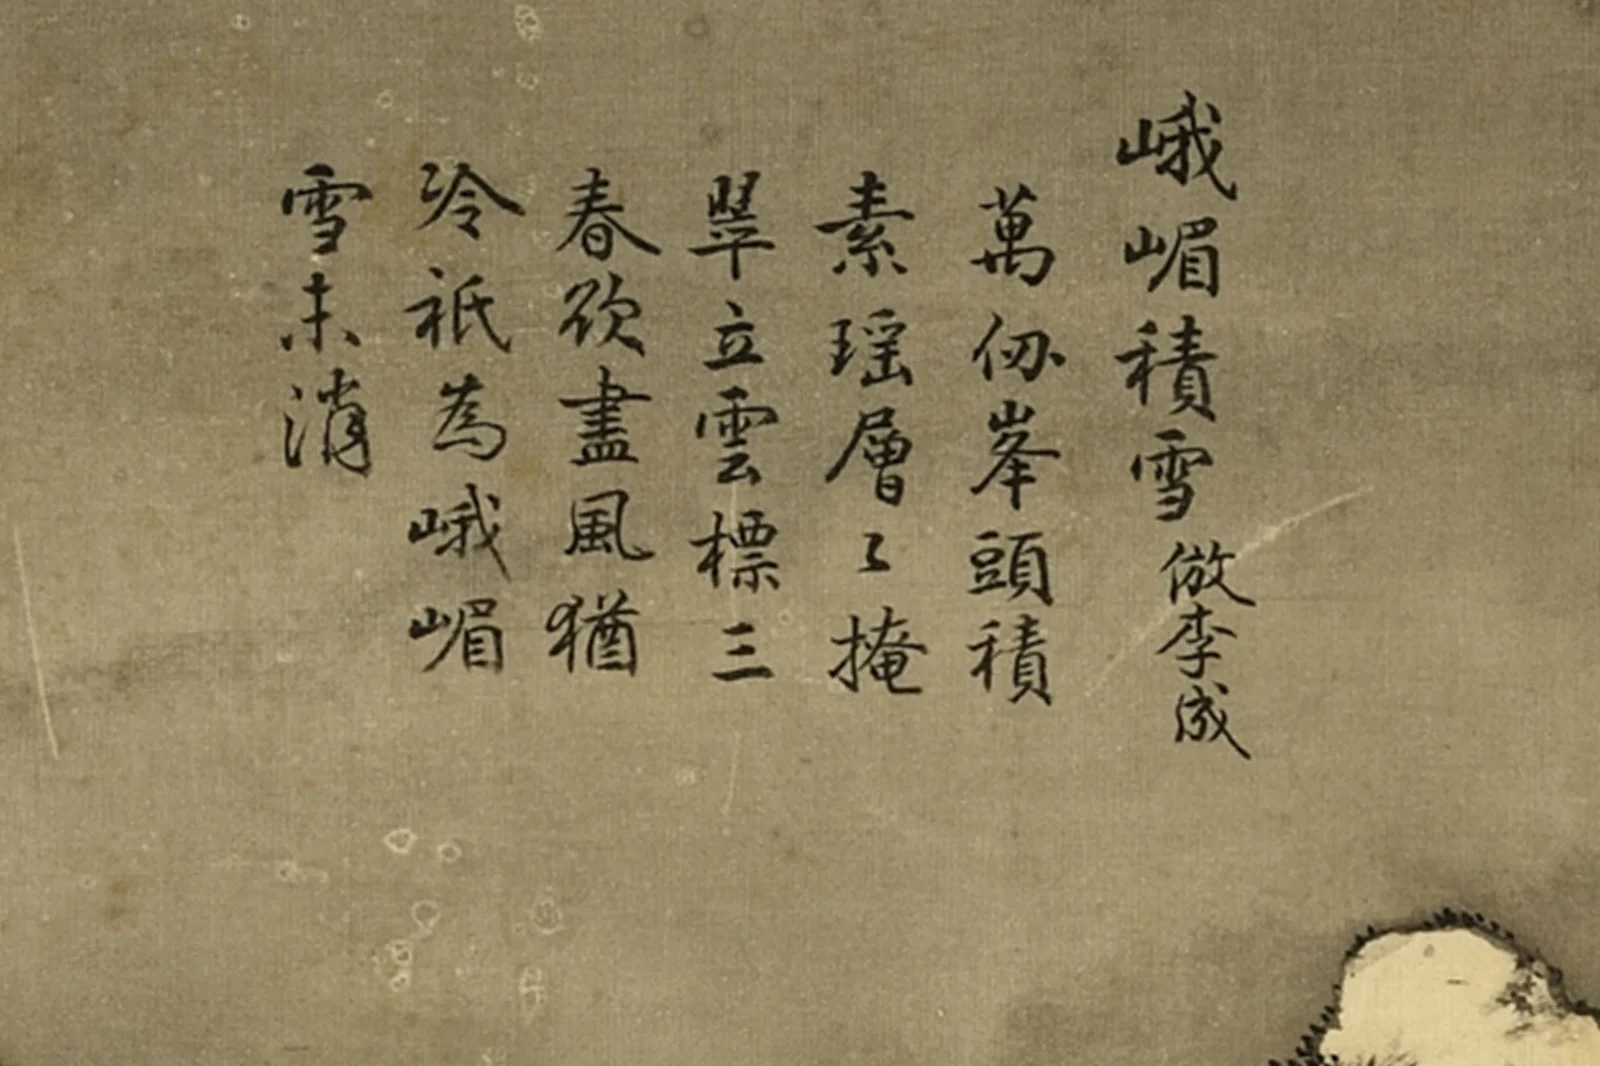 峨嵋積雪 倣李成
萬仞峯頭積
素瑶層〻掩
翠立雲標三
春欲盡風猶
冷祇為峨嵋
雪未消